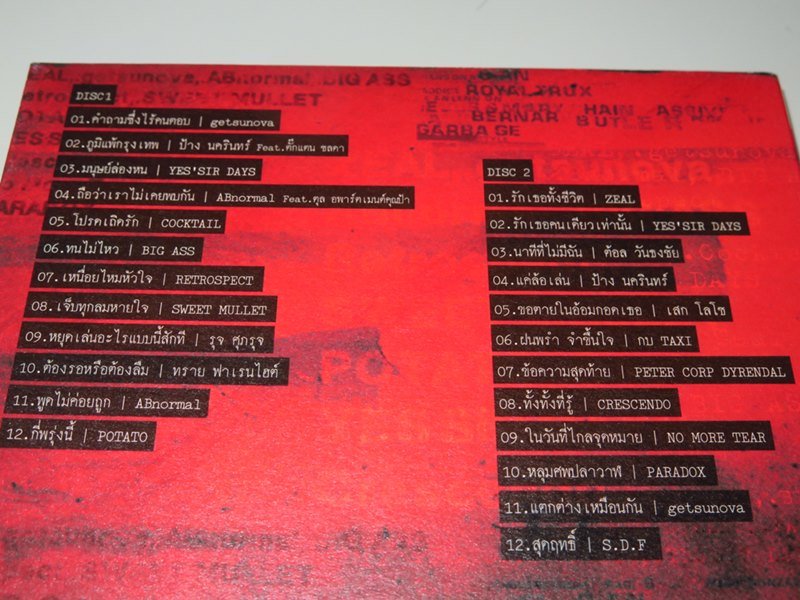 BAL, getsunova, ABnormal, BIG ASS
SWEET MULLET
ROYAL TRUX
HAIN
BERNAR
GARBAGE
DISC1
01.คำถามซึ่งไร้คนตอบ | getsunova
02.ภูมิแพ้กรุงเทพ | ป้าง นครินทร์ Feat.ตั๊กแตน ชลดา
03.มนุษย์ล่องหน | YES'SIR DAYS
04.ถือว่าเราไม่เคยพบกัน | ABnormal Feat.ตุล อพาร์ตเมนต์คุณป้า
05.โปรดเถิดรัก | COCKTAIL
06.ทนไม่ไหว | BIG ASS
07.เหนื่อยไหมหัวใจ | RETROSPECT
08.เจ็บทุกลมหายใจ | SWEET MULLET
09.หยุดเล่นอะไรแบบนี้สักที | รุจ ศุภรุจ
10.ต้องรอหรือต้องลืม | ทราย ฟาเรนไฮต์
11.พูดไม่ค่อยถูก | ABnormal
12.กี่พรุ่งนี้ | POTATO
DISC 2
01.รักเธอทั้งชีวิต | ZEAL
02.รักเธอคนเดียวเท่านั้น | YES'SIR DAYS
03.นาทีที่ไม่มีฉัน | ต้อล วันธงชัย
04.แค่ล้อเล่น | ป้าง นครินทร์
05.ขอตายในอ้อมกอดเธอ | เสก โลโซ
06.ฝนพรำ จำขึ้นใจ | กบ TAXI
07.ข้อความสุดท้าย | PETER CORP DYRENDAL
08.ทั้งทั้งที่รู้ | CRESCENDO
09.ในวันที่ไกลจุดหมาย | NO MORE TEAR
10.หลุมศพปลาวาฬ | PARADOX
11.แตกต่างเหมือนกัน | getsunova
12.สุดฤทธิ์ | S.D.F